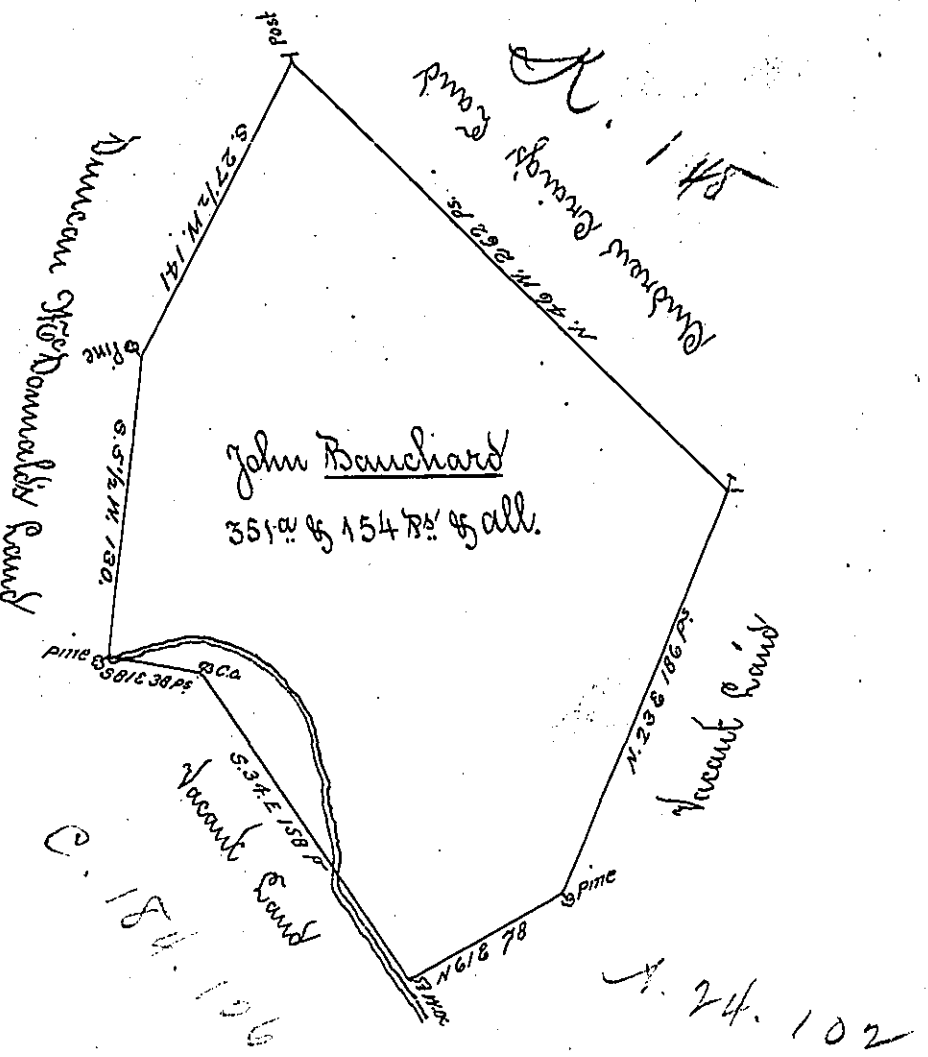 A. 148
Post
Andrew Craings Land
N. 46 W. 262 Ps.
S. 27½ W. 141
Duncan McDonnald's Land
Pine
S. 5½ W. 130.
John Bauchard
351 a. & 154 Ps. & all.
Pine
S 81 E 38 Ps.
C.O.
S. 34. E 158 P.
Vacant Land
N. 23 E 186 Ps.
Vacant Land
Pine
N 61 E 78
W.O.
C. 184. 106
A. 24. 102